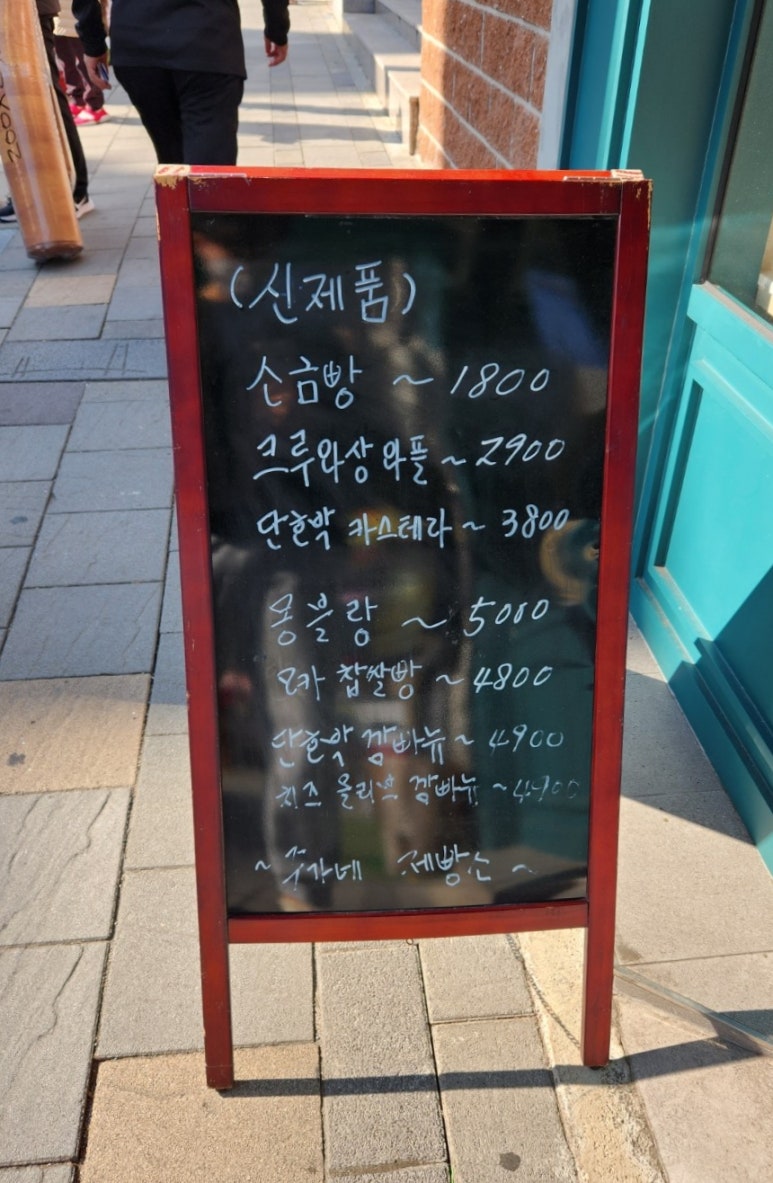 (신제품)
소금빵 ~ 1800
크루와상 와플 ~ 2900
단호박 카스테라 ~ 3800
몽블랑 ~ 5000
모카 찹쌀빵 ~ 4800
단호박 깜빠뉴 ~ 4900
치즈 올리브 깜빠뉴 ~ 4900
~ 제빵소 ~